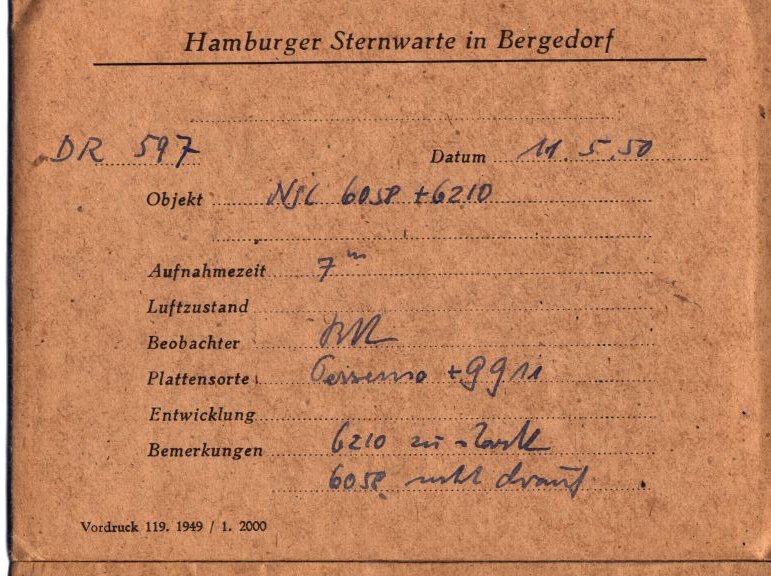 Hamburger Sternwarte in Bergedorf
DR 597 Datum 11.5.50
Objekt NGC 6058 + 6210
Aufnahmezeit 7 m
Luftzustand
Beobachter
Plattensorte + GG 11
Entwicklung
Bemerkungen 6210 zu stark
6058 nicht drauf
Vordruck 119. 1949 / 1. 2000